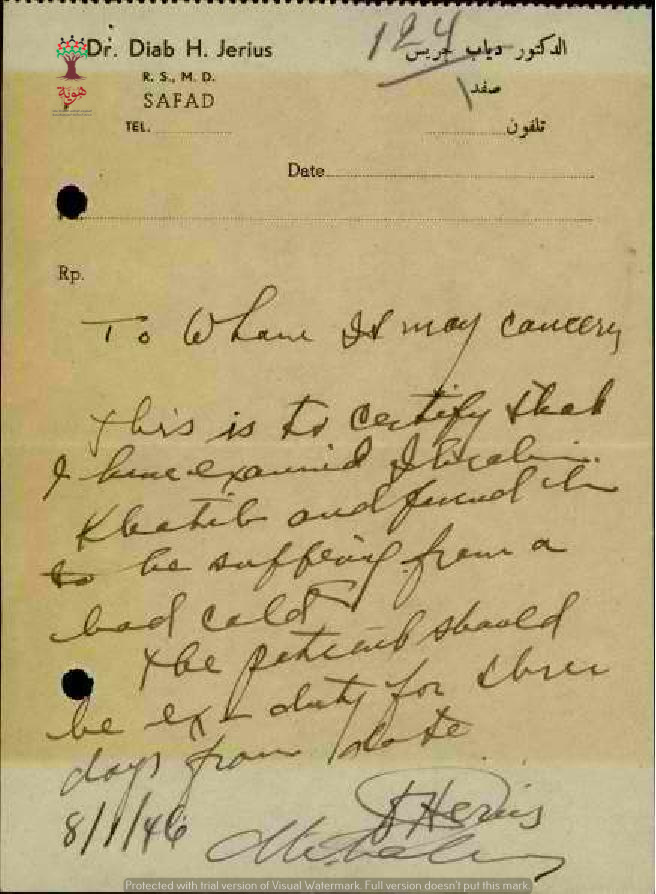 124
Dr. Diab H. Jerius
الدكتور دياب جريس
R. S., M. D.
SAFAD
صفد
TEL.
تلفون
هوية
Date
Rp.
To Whom It may concern
This is to certify that
I have examined Ibrahim
Khatib and found him
to be suffering from a
bad cold
The patient should
be ex-duty for three
days from date
8/1/46
Protected with trial version of Visual Watermark. Full version doesn't put this mark.